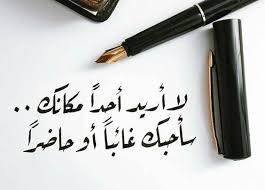 لا أريد أحداً مكانك ..
سأحبك غائباً أو حاضراً